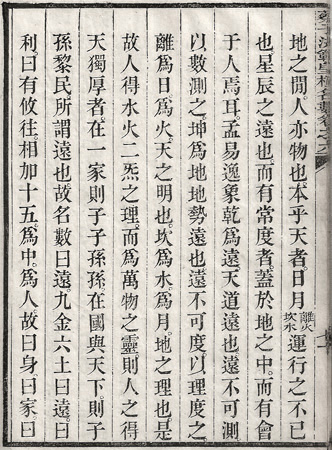 地之閒人亦物也。本乎天者日月離火坎水運行之不已
也。星辰之遠也。而有常度者。蓋於地之中。而有會
于人焉耳。孟易逸象。乾爲遠。天道遠也。遠不可測
以數測之。坤爲地。地勢遠也。遠不可度。以理度之。
離爲日。爲火。天之明也。坎爲水。爲月。地之理也。是
故人得水火二炁之理。而爲萬物之靈。則人之得
天獨厚者。在一家則子子孫孫。在國與天下。則子
孫黎民。所謂遠也。故名數曰遠。九金六上曰遠。曰
利。曰有攸往。相加十五。爲中。爲人。故曰身曰家曰